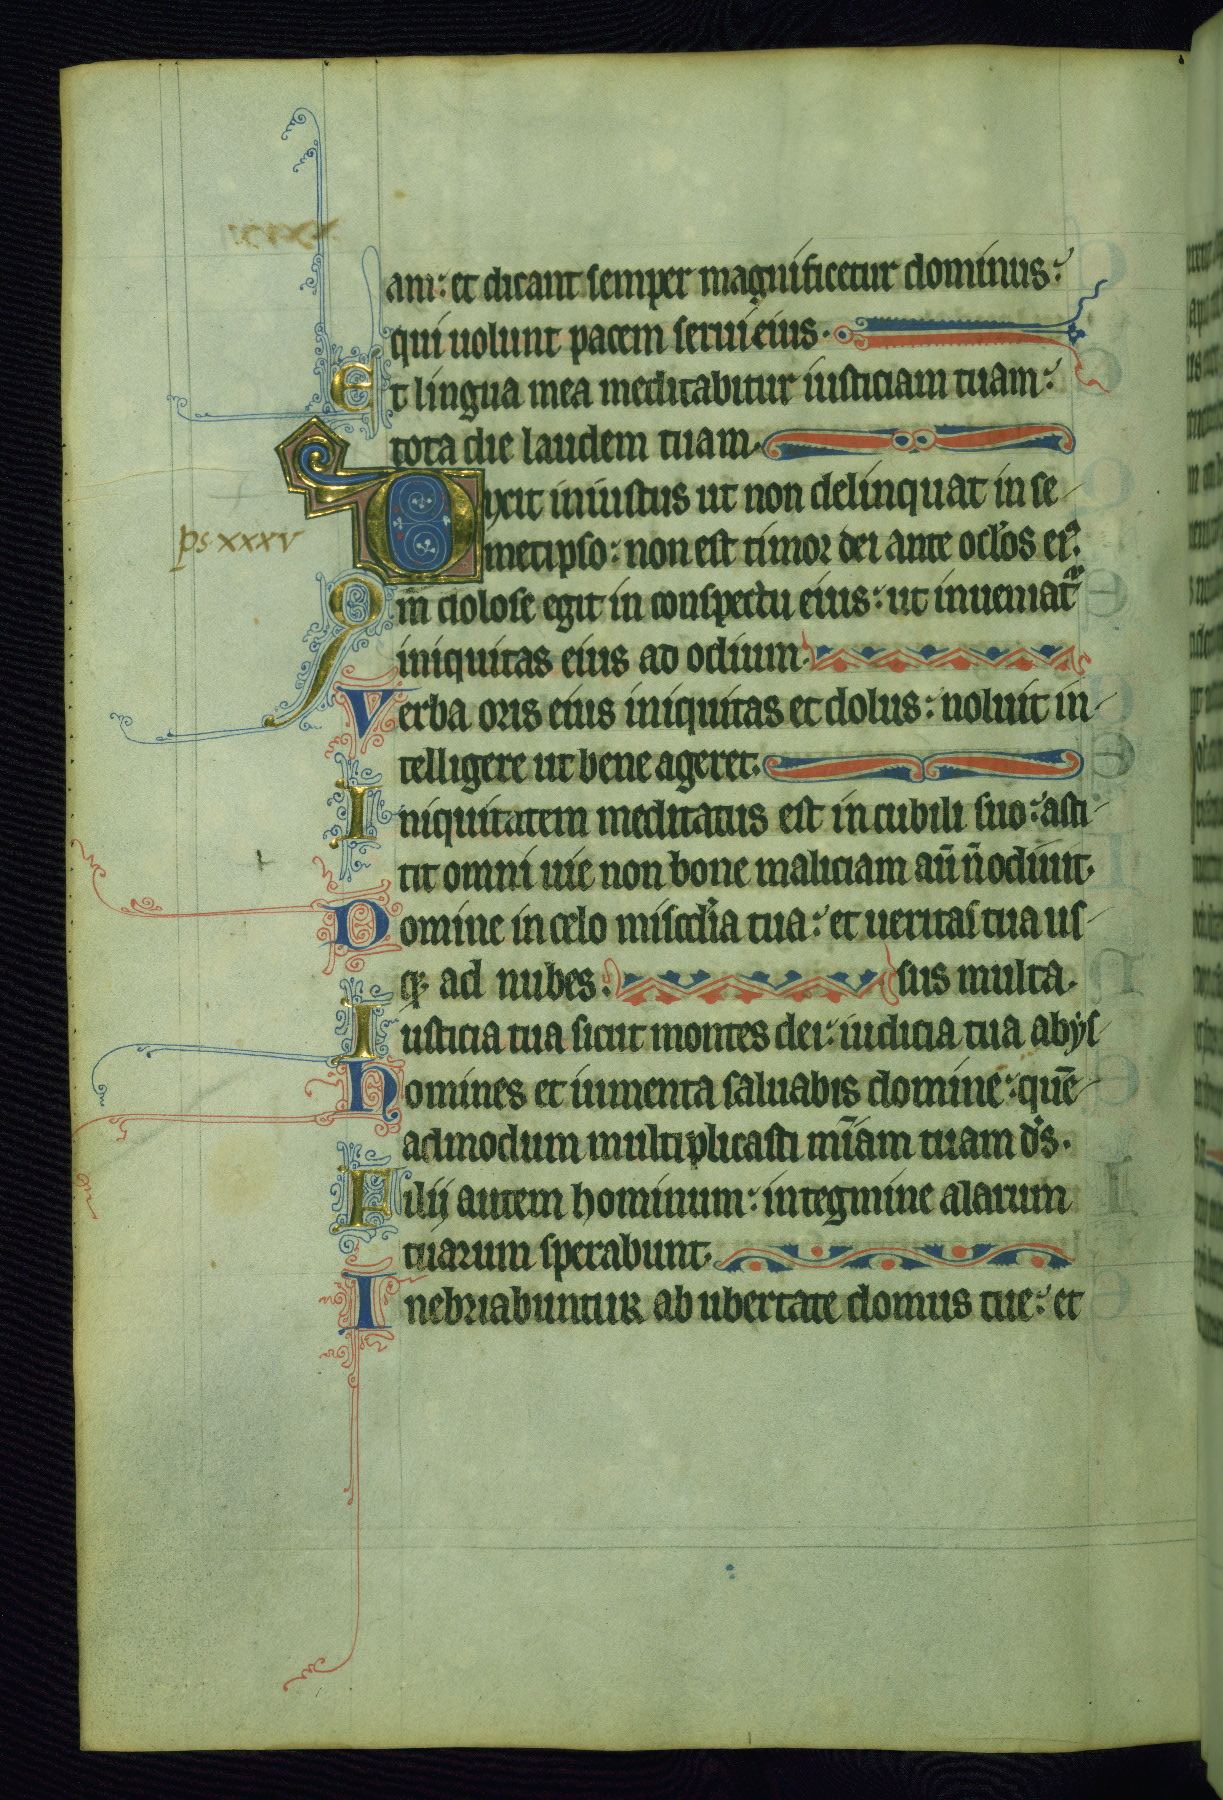 am: et dicant semper magnificetur dominus:
qui uolunt pacem serui eius.
Et lingua mea meditabitur iusticiam tuam:
tota die laudem tuam.
Dixit iniustus ut non delinquat in se
ps xxxv
metipso: non est timor dei ante oclos ei
Qm̄ dolose egit in conspectu eius: ut inueniat
iniquitas eius ad odium.
Verba oris eius iniquitas et dolus: noluit in
telligere ut bene ageret.
Iniquitatem meditatus est in cubili suo: asti
tit omni uie non bone maliciam aū n̄ odiuit.
Domine in celo miscdia tua: et ueritas tua us
q; ad nubes. sus multa.
Iusticia tua sicut montes dei: iudicia tua abys
Homines et iumenta saluabis domine: quē
admodum multiplicasti mīam tuam ds.
Filij autem hominum: in tegmine alarum
tuarum sperabunt.
Inebriabuntur ab ubertate domus tue: et